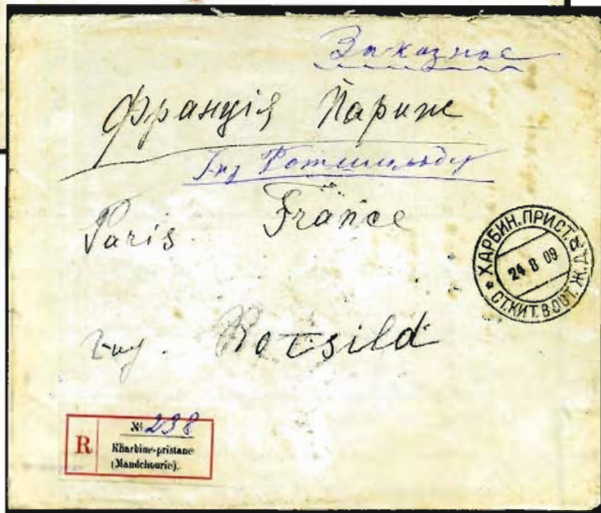 Заказное
Франція Париж
Г-ну Ротшильду
Paris France
Rotsild
ХАРБИН. ПРИСТ.
24 8 09
СТ. КИТ. ВОСТ. Ж. Д.
№ 238
R
Kharbine-pristane
(Mandchourie).